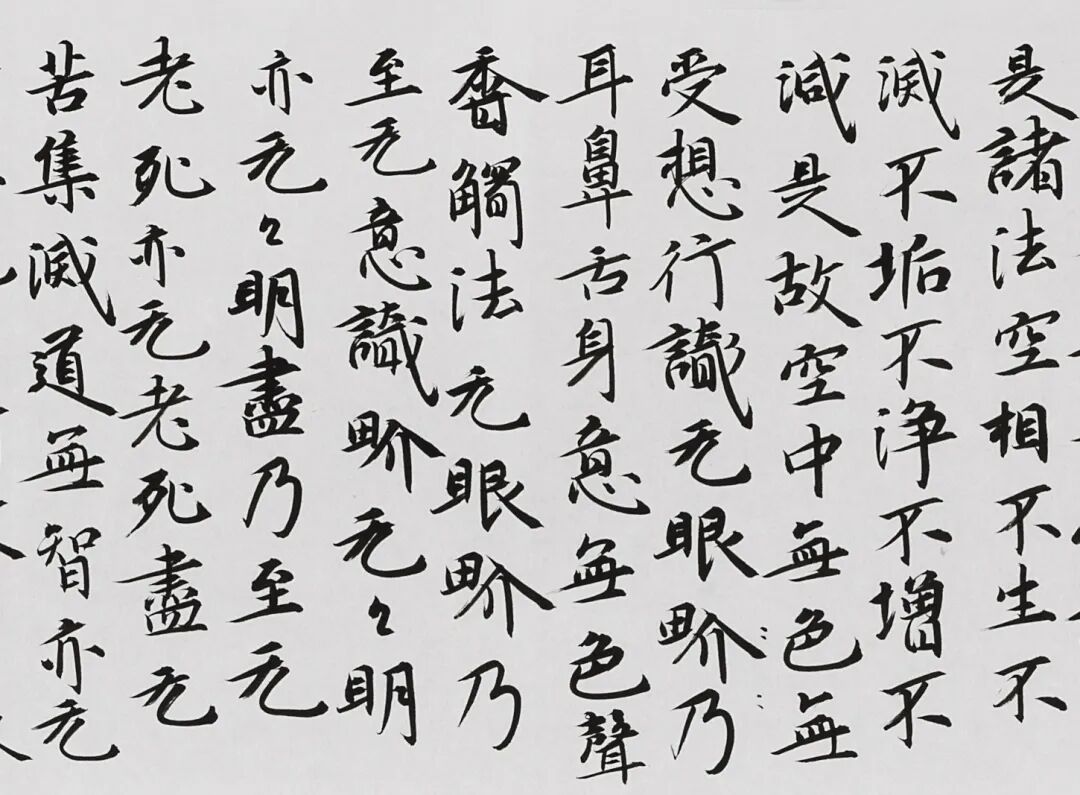 是諸法空相不生不
滅不垢不浄不增不
減是故空中無色無
受想行識无眼畍乃
耳鼻舌身意無色聲
香觸法无眼畍乃
至无意識畍无々明
亦无々明盡乃至无
老死亦无老死盡无
苦集滅道無智亦无